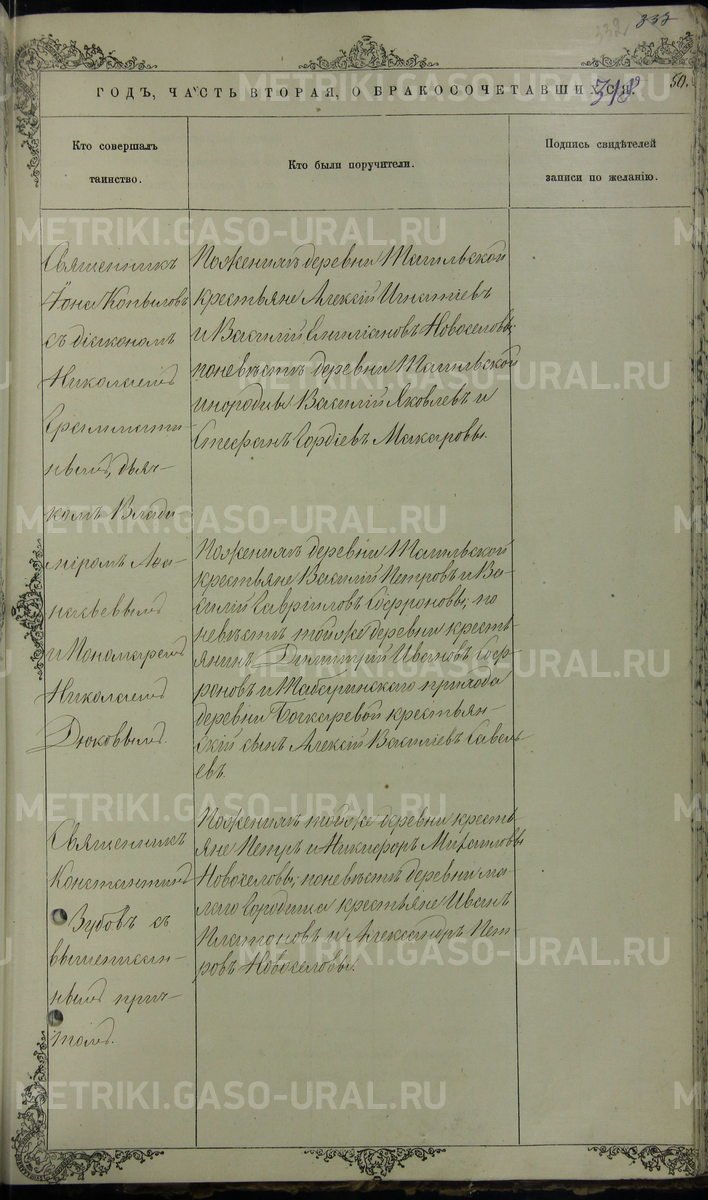 332
332
318
50.
ГОДЪ, ЧАСТЬ ВТОРАЯ, О БРАКОСОЧЕТАВШИХСЯ.
Кто совершалъ
таинство.
Кто были поручители.
Подпись свидѣтелей
записи по желанію.
Священникъ
Іона Копыловъ
съ діакономъ
Николаемъ
нымъ, дьяч-
комъ Влади-
міромъ Аѳа-
насьевымъ
и Пономаремъ
Николаемъ
Дюковымъ.
По женихѣ деревни Тагильской
крестьяне Алексій Игнатіевъ
и Василій Новоселовы;
по невѣстѣ деревни Тагильской
инородцы Василій Яковлевъ и
Стефанъ Гордіевъ Макаровы.
По женихѣ деревни Тагильской
крестьяне Василій Петровъ и Ва-
силій Гавриловъ Сафроновы; по
невѣстѣ той же деревни кресть-
янинъ Димитрій Ивановъ Соф-
роновъ и Табаринскаго прихода
деревни Бочкаревой крестьян-
скій сынъ Алексій Василіевъ Савель-
евъ.
Священникъ
Константинъ
Зубовъ съ
вышеписан-
нымъ прич-
томъ.
По женихѣ той же деревни кресть-
яне Петръ и Никифоръ Михаиловы
Новоселовы; по невѣстѣ деревни ма-
лаго Городища крестьяне Иванъ
Платоновъ и Александръ Пет-
ровъ Новоселовы.
METRIKI.GASO-URAL.RU